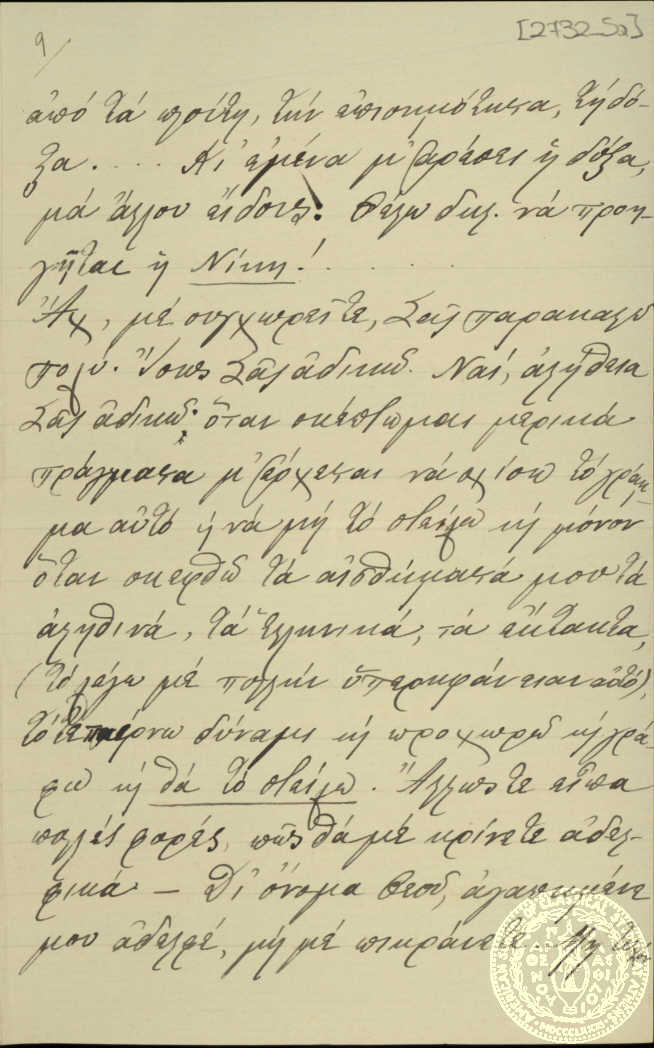 9/
[2732_5a]
ἀπό τά πλούτη, τήν ἐπισημότητα, τή δό-
ξα.... Κι' ἐμένα μ' ἀρέσει ἡ δόξα,
μά ἄλλου εἴδους. Θέλω δηλ. νά προη-
γῆται ἡ Νίκη!......
Ἄχ, μέ συγχωρεῖτε, Σᾶς παρακαλῶ
πολύ. Ἴσως Σᾶς ἀδικῶ. Ναί, ἀλήθεια
Σᾶς ἀδικῶ· ὅταν σκέπτωμαι μερικά
πράγματα μ' ἔρχεται νά σχίσω τό γράμ-
μα αὐτό ἤ νά μή τό στείλω κι μόνον
ὅταν σκεφθῶ τά αἰσθήματά μου τά
ἀληθινά, τά Ἑλληνικά, τά ἔκτακτα,
(τό λέγω μέ πολλήν ὑπερηφάνειαν αὐτό),
τότε πέρνω δύναμι κι προχωρῶ κι γρά-
φω κι θά τό στείλω. Ἄλλωστε εἶπα
πολλές φορές, πῶς θά μέ κρίνετε ἀδελ-
φικά — Δι' ὄνομα Θεοῦ, ἀγαπημένε
μου ἀδελφέ, μή μέ πικράνετε. Μη